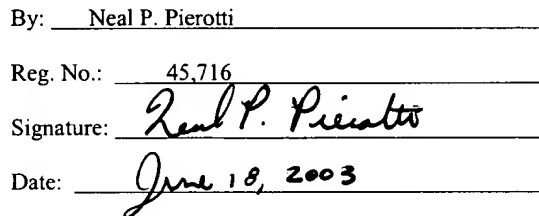 By: Neal P. Pierotti
Reg. No.: 45,716
Signature: Neal P. Pierotti
Date: June 18, 2003